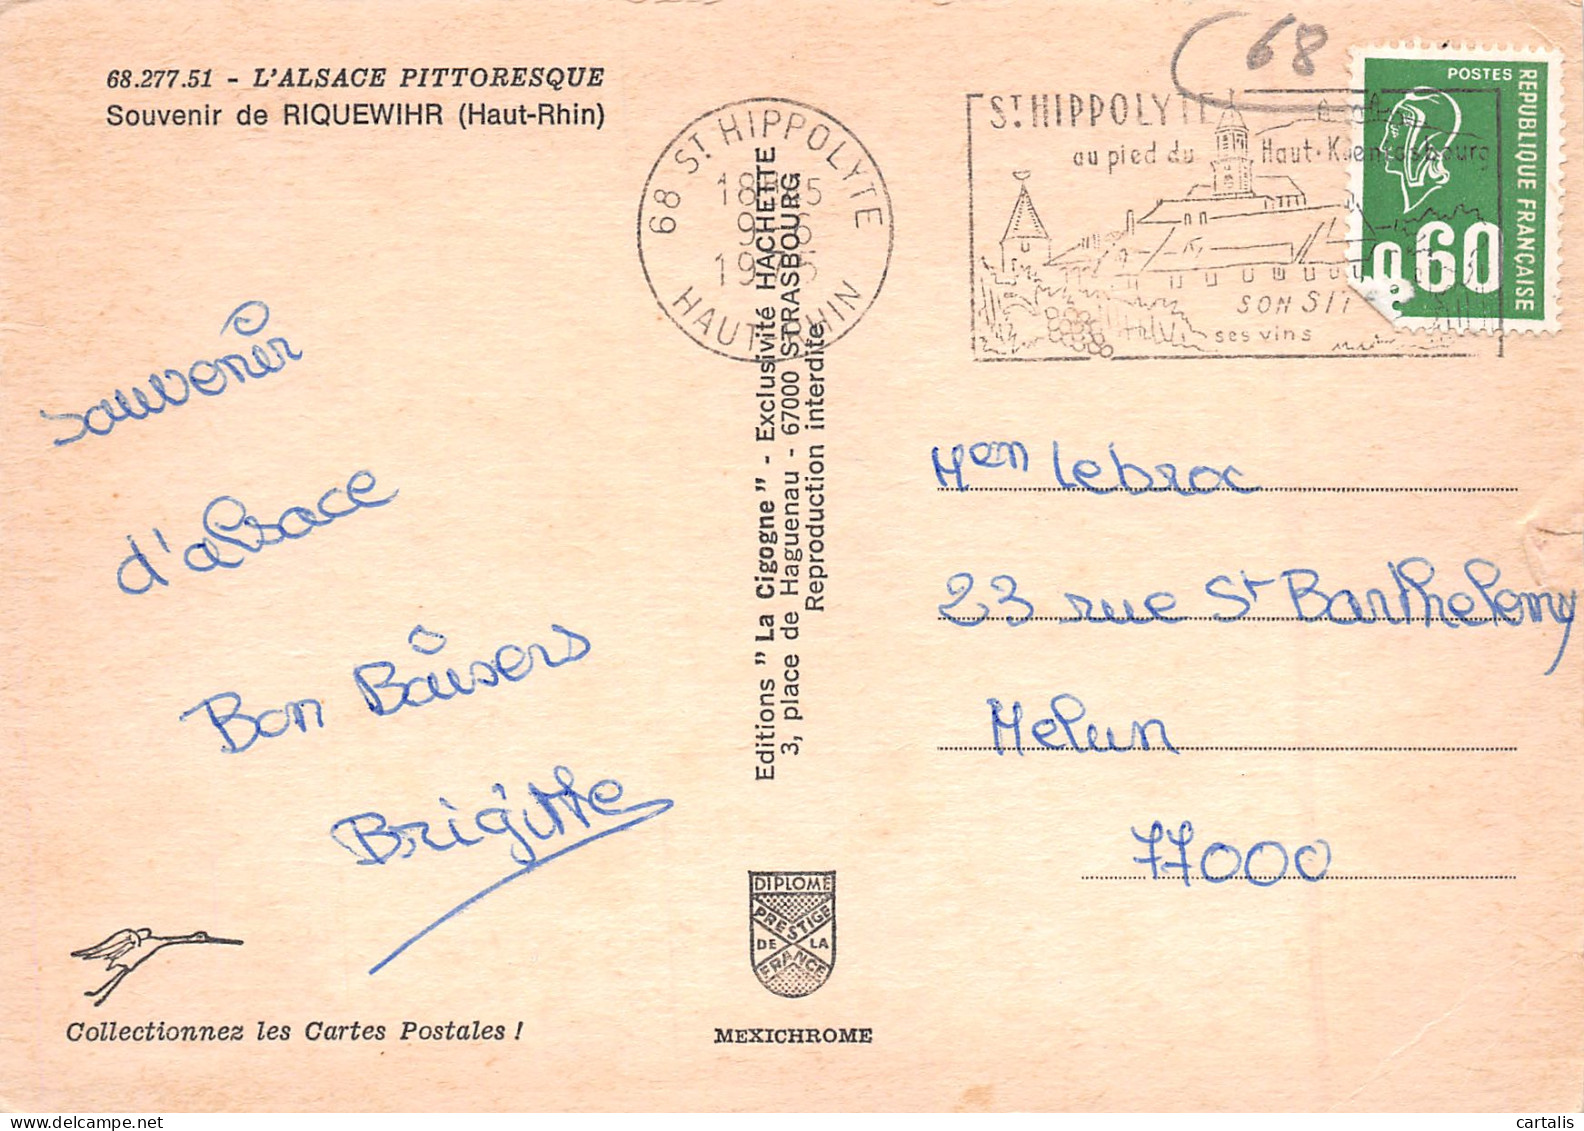 68.277.51 - L'ALSACE PITTORESQUE
Souvenir de RIQUEWIHR (Haut-Rhin)
68
68 ST HIPPOLYTE
HAUT-RHIN
ST HIPPOLYTE
au pied du Haut-Kœnigsbourg
SON SIT
ses vins
POSTES
REPUBLIQUE FRANÇAISE
0,60
souvenir
d'alsace
Bon Baisers
Brigitte
Editions " La Cigogne " - Exclusivité HACHETTE
3, place de Haguenau - 67000 STRASBOURG
Reproduction interdite
Men Lebroc
23 rue St Barthelemy
Melun
77000
DIPLOME
PRESTIGE
DE LA
FRANCE
Collectionnez les Cartes Postales !
MEXICHROME
delcampe.net
cartalis